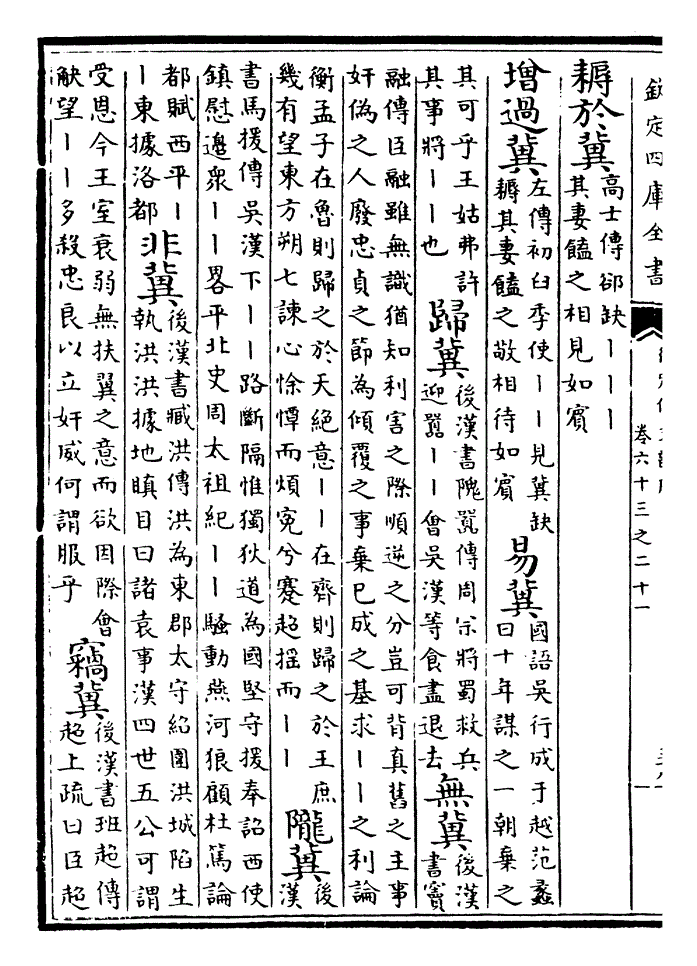 欽定四庫全書
卷六十三之二十一
耨於冀
高士傳郤缺丨丨丨
其妻饁之相見如賓
增過冀
左傳初臼季使丨丨見冀缺
耨其妻饁之敬相待如賓
易冀
國語吳行成于越范蠡
曰十年謀之一朝棄之
其可乎王姑弗許
其事將丨丨也
歸冀
後漢書隗囂傳周宗將蜀救兵
迎囂丨丨會吳漢等食盡退去
無冀
後漢
書竇
融傳臣融雖無識猶知利害之際順逆之分豈可背真舊之主事
奸偽之人廢忠貞之節為傾覆之事棄已成之基求丨丨之利論
衡孟子在魯則歸之於天絕意丨丨在齊則歸之於王庶
幾有望東方朔七諫心悇憛而煩寃兮蹇超摇而丨丨
隴冀
後
漢
書馬援傳吳漢下丨丨路斷隔惟獨狄道為國堅守援奉詔西使
鎮慰邊衆丨丨畧平北史周太祖紀丨丨騷動燕河狼顧杜篤論
都賦西平丨
丨東據洛都
非冀
後漢書臧洪傳洪為東郡太守紹圍洪城陷生
執洪洪據地瞋目曰諸袁事漢四世五公可謂
受恩今王室衰弱無扶翼之意而欲因際會
觖望丨丨多殺忠良以立奸威何謂服乎
竊冀
後漢書班超傳
超上疏曰臣超